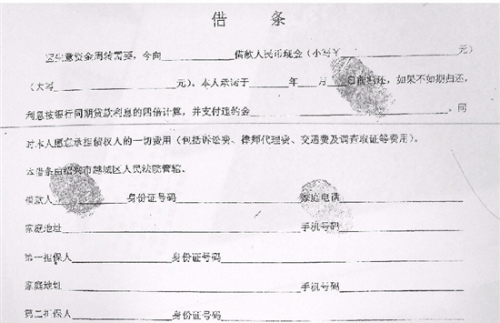 借 条
因生意资金周转需要，今向____________借款人民币现金（小写￥____________元）
（大写____________元），本人承诺于____年__月__日前归还，如果不如期归还，
利息按银行同期贷款利息的四倍计算，并支付违约金____________、同
时本人愿意承担债权人的一切费用（包括诉讼费、律师代理费、交通费及调查取证等费用）。
本借条由绍兴市越城区人民法院管辖。
借款人____________身份证号码____________家庭电话____________
家庭地址____________手机号码____________
第一担保人____________身份证号码____________
家庭地址____________手机号码____________
第二担保人____________身份证号码____________